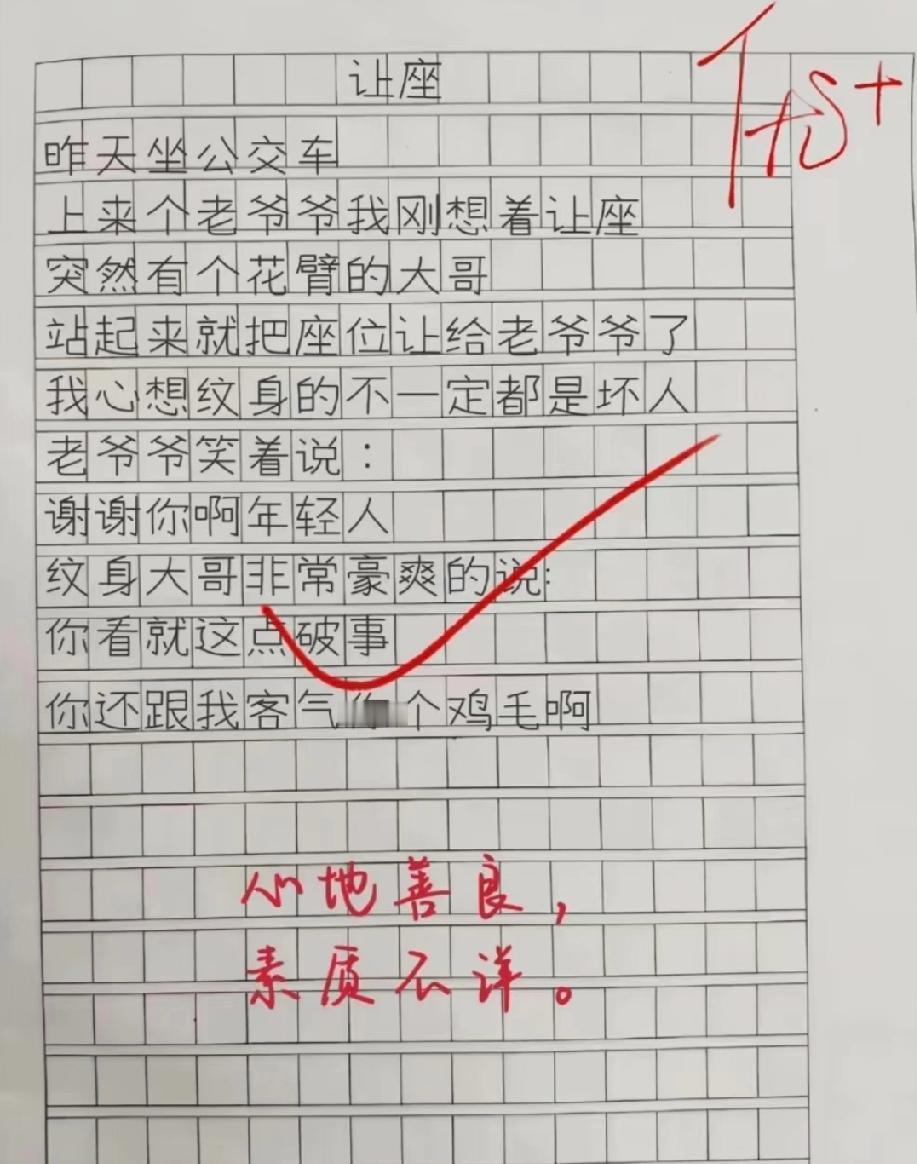 让座
优+
昨天坐公交车
上来个老爷爷我刚想着让座
突然有个花臂的大哥
站起来就把座位让给老爷爷了
我心想纹身的不一定都是坏人
老爷爷笑着说：
谢谢你啊年轻人
纹身大哥非常豪爽的说:
你看就这点破事
你还跟我客气 个鸡毛啊
心地善良，
素质不详。